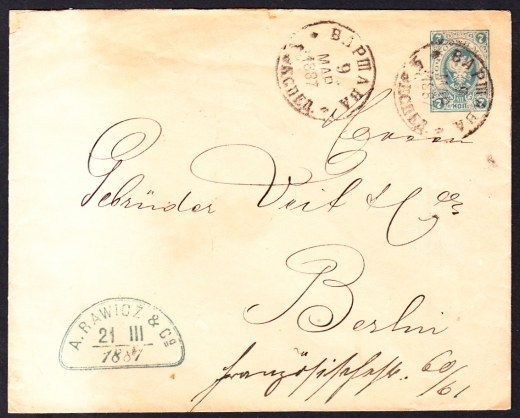 ВАРШАВА
9
МАР
1887
7
КОП.
ВАРШАВА
Herren
Gebrüder Veit & Co
Berlin
Französischestr. 60/61
A. RAWICZ & Co
21 III
1887